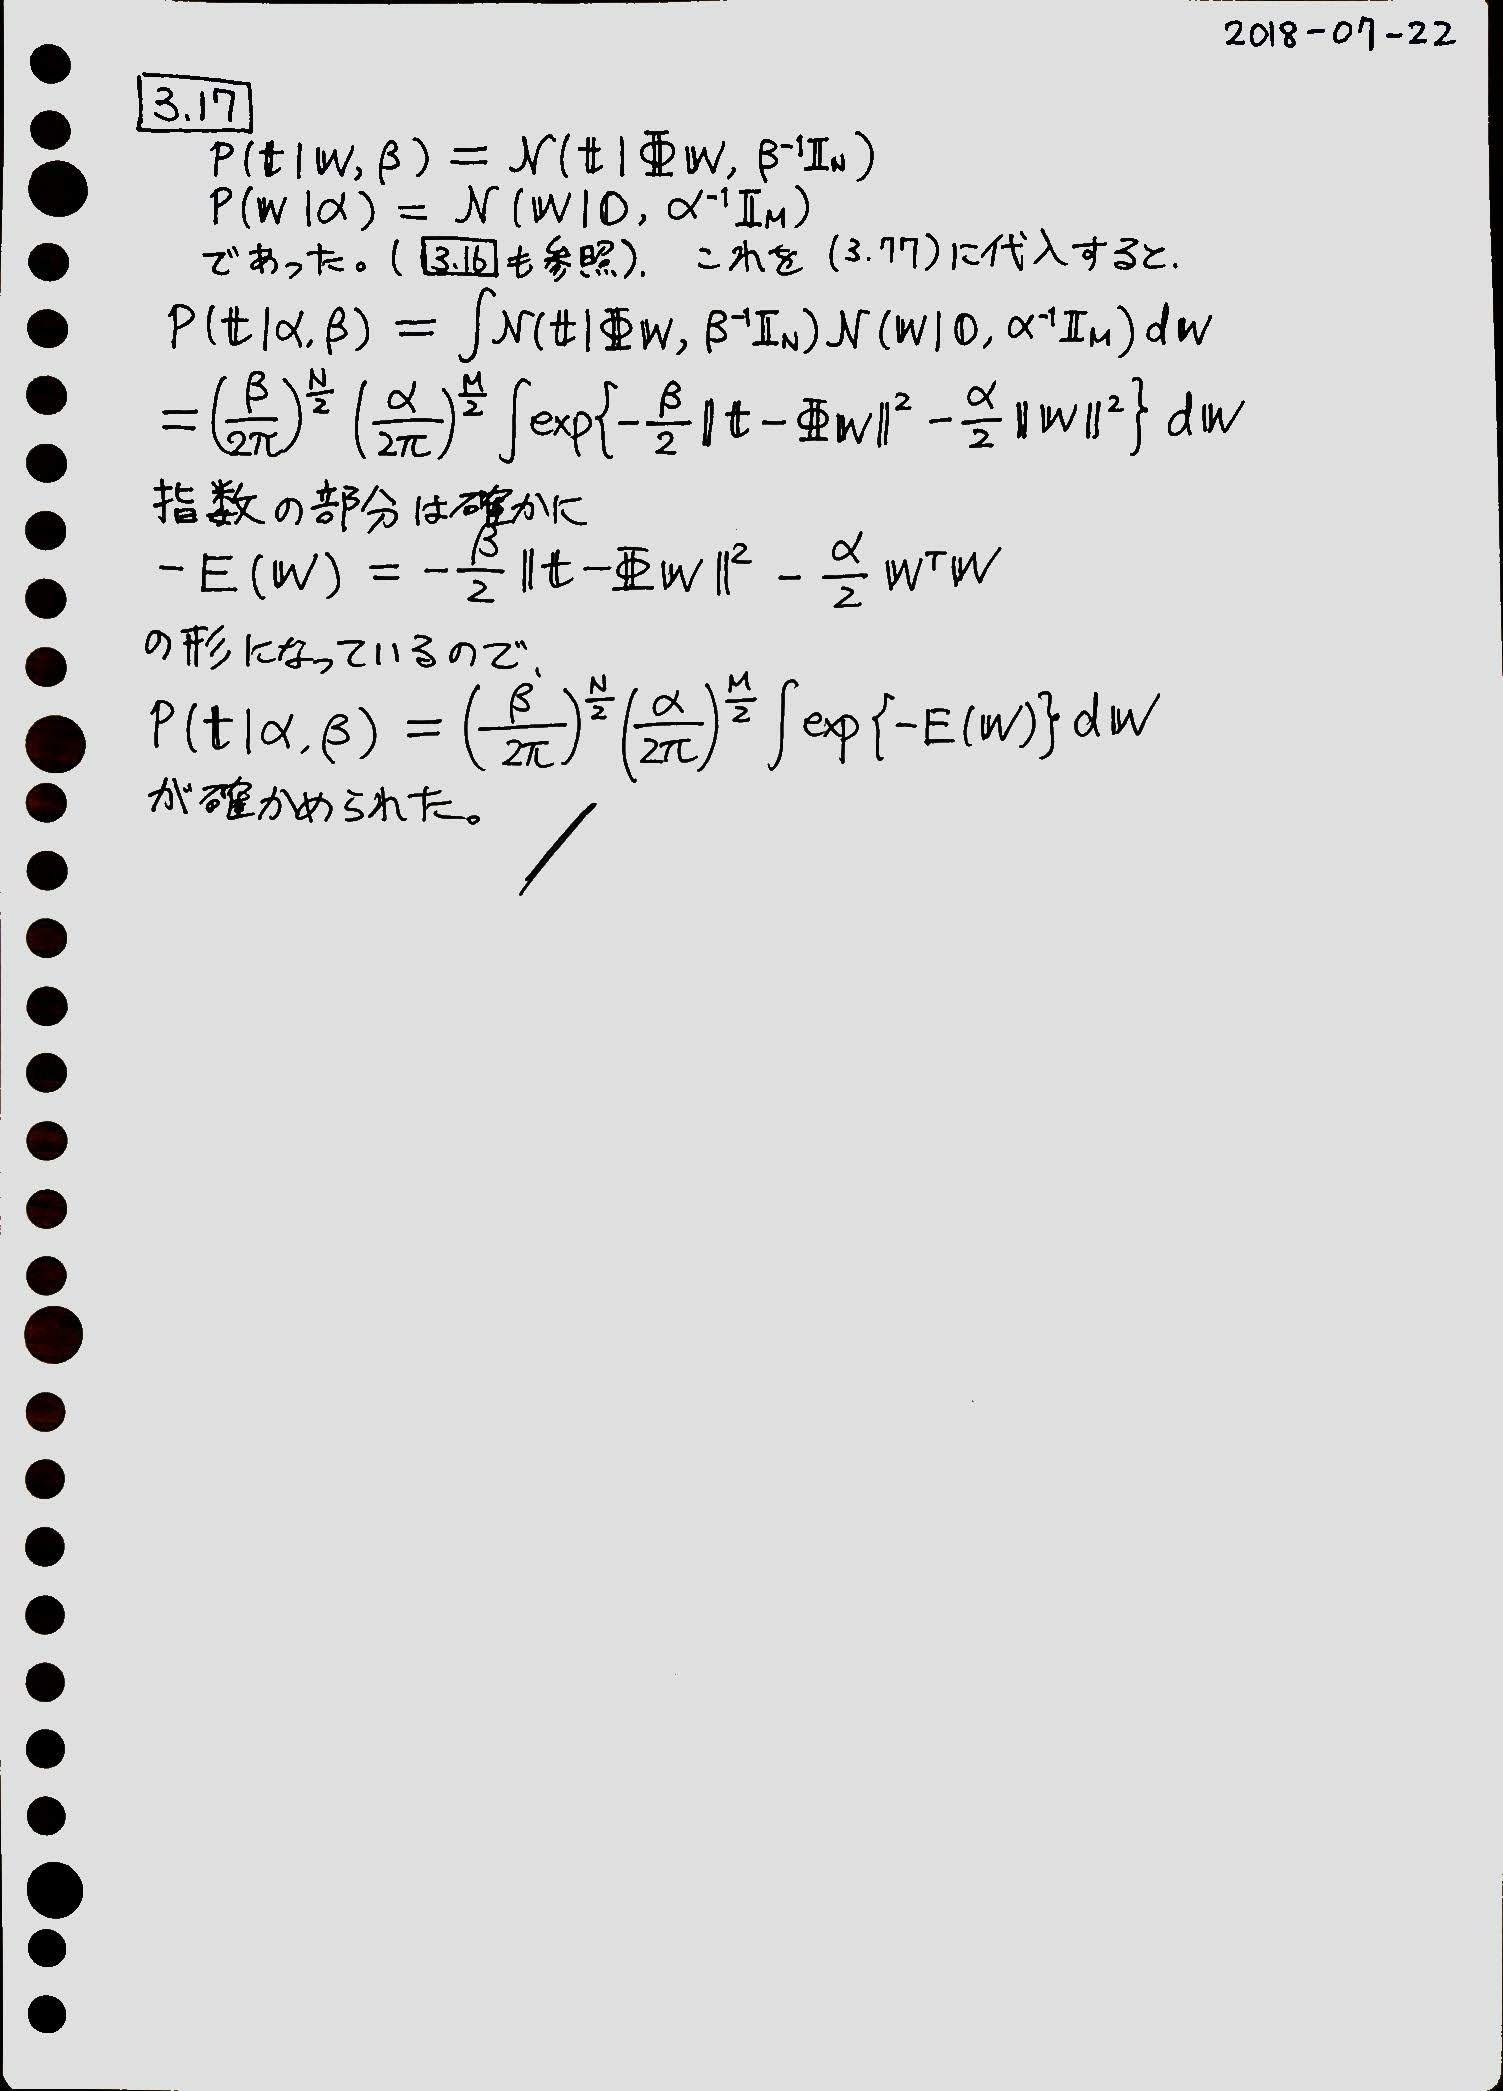 2018-07-22
3.17
P(𝕥|𝕨, β) = 𝒩(𝕥|Φ𝕨, β⁻¹𝕀_N)
P(𝕨|α) = 𝒩(𝕨|𝟘, α⁻¹𝕀_M)
であった。(3.16も参照). これを (3.77)に代入すると.
P(𝕥|α, β) = ∫𝒩(𝕥|Φ𝕨, β⁻¹𝕀_N)𝒩(𝕨|𝟘, α⁻¹𝕀_M)d𝕨
= (β/2π)^{N/2} (α/2π)^{M/2} ∫exp{-β/2‖𝕥-Φ𝕨‖² - α/2‖𝕨‖²}d𝕨
指数の部分は確かに
-E(𝕨) = -β/2‖𝕥-Φ𝕨‖² - α/2 𝕨ᵀ𝕨
の形になっているので、
P(𝕥|α, β) = (β/2π)^{N/2}(α/2π)^{M/2}∫exp{-E(𝕨)}d𝕨
が確かめられた。